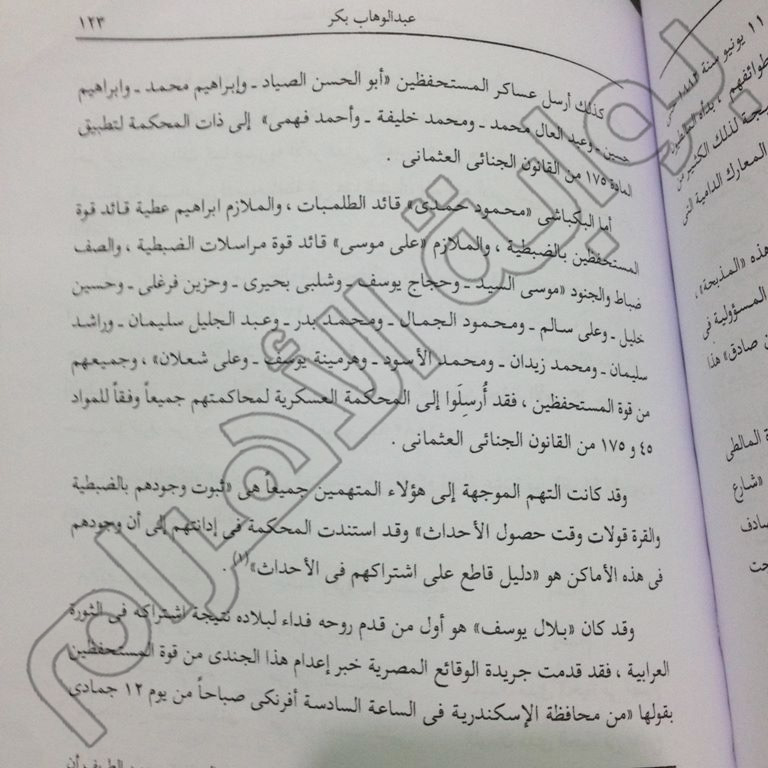 عبدالوهاب بكر
١٢٣
كذلك أرسل عساكر المستحفظين «أبو الحسن الصياد ـ وإبراهيم محمد ـ وابراهيم
حسين ـ وعبد العال محمد ـ ومحمد خليفة ـ وأحمد فهمى» إلى ذات المحكمة لتطبيق
المادة ١٧٥ من القانون الجنائى العثمانى .
أما البكباشى «محمود حمدى» قائد الطلمبات ، والملازم ابراهيم عطية قائد قوة
المستحفظين بالضبطية ، والملازم «على موسى» قائد قوة مراسلات الضبطية ، والصف
ضباط والجنود «موسى السيد ـ وحجاج يوسف ـ وشلبى بحيرى ـ وحزين فرغلى ـ وحسين
خليل ـ وعلى سالم ـ ومحمود الجمال ـ ومحمد بدر ـ وعبد الجليل سليمان ـ وراشد
سليمان ـ ومحمد زيدان ـ ومحمد الأسود ـ وهرمينة يوسف ـ وعلى شعلان» ، وجميعهم
من قوة المستحفظين ، فقد أُرسِلَوا إلى المحكمة العسكرية لمحاكمتهم جميعاً وفقاً للمواد
٤٥ و ١٧٥ من القانون الجنائى العثمانى .
وقد كانت التهم الموجهة إلى هؤلاء المتهمين جميعاً هى «ثبوت وجودهم بالضبطية
والقرة قولات وقت حصول الأحداث» وقد استندت المحكمة فى إدانتهم إلى أن وجودهم
فى هذه الأماكن هو «دليل قاطع على اشتراكهم فى الأحداث»(١) .
وقد كان «بلال يوسف» هو أول من قدم روحه فداء لبلاده نتيجة اشتراكه فى الثورة
العرابية ، فقد قدمت جريدة الوقائع المصرية خبر إعدام هذا الجندى من قوة المستحفظين
بقولها «من محافظة الإسكندرية فى الساعة السادسة أفرنكى صباحاً من يوم ١٢ جمادى
١١ يونيو سنة
طوائفهم ، بدأه
يجة لذلك الكثير من
المعارك الدامية التى
هذه «المذبحة» ،
المسؤولية فى
ن صادق» هذا
ة المالطى
«شارع
صادف
حت
بوابة الأهرام